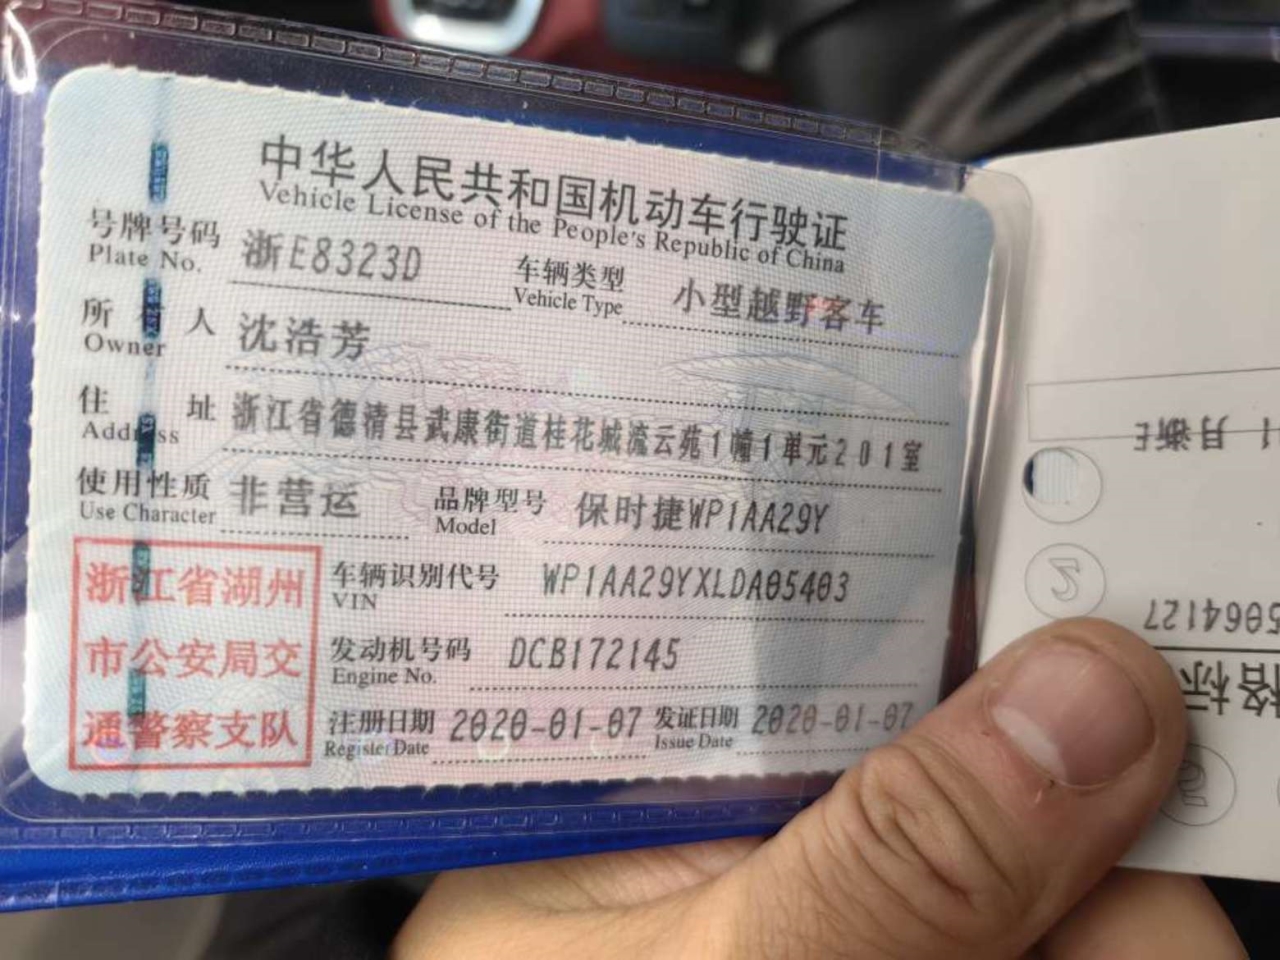 中华人民共和国机动车行驶证
Vehicle License of the People's Republic of China
号牌号码 浙E8323D 车辆类型 小型越野客车
Plate No. Vehicle Type
所有人 沈浩芳
Owner
住址 浙江省德清县武康街道桂花城流云苑1幢1单元201室
Address
使用性质 非营运 品牌型号 保时捷WP1AA29Y
Use Character Model
浙江省湖州
市公安局交
通警察支队
车辆识别代号 WP1AA29YXLDA05403
VIN
发动机号码 DCB172145
Engine No.
注册日期 2020-01-07 发证日期 2020-01-07
Register Date Issue Date
1月浙E
2
5064127
格标